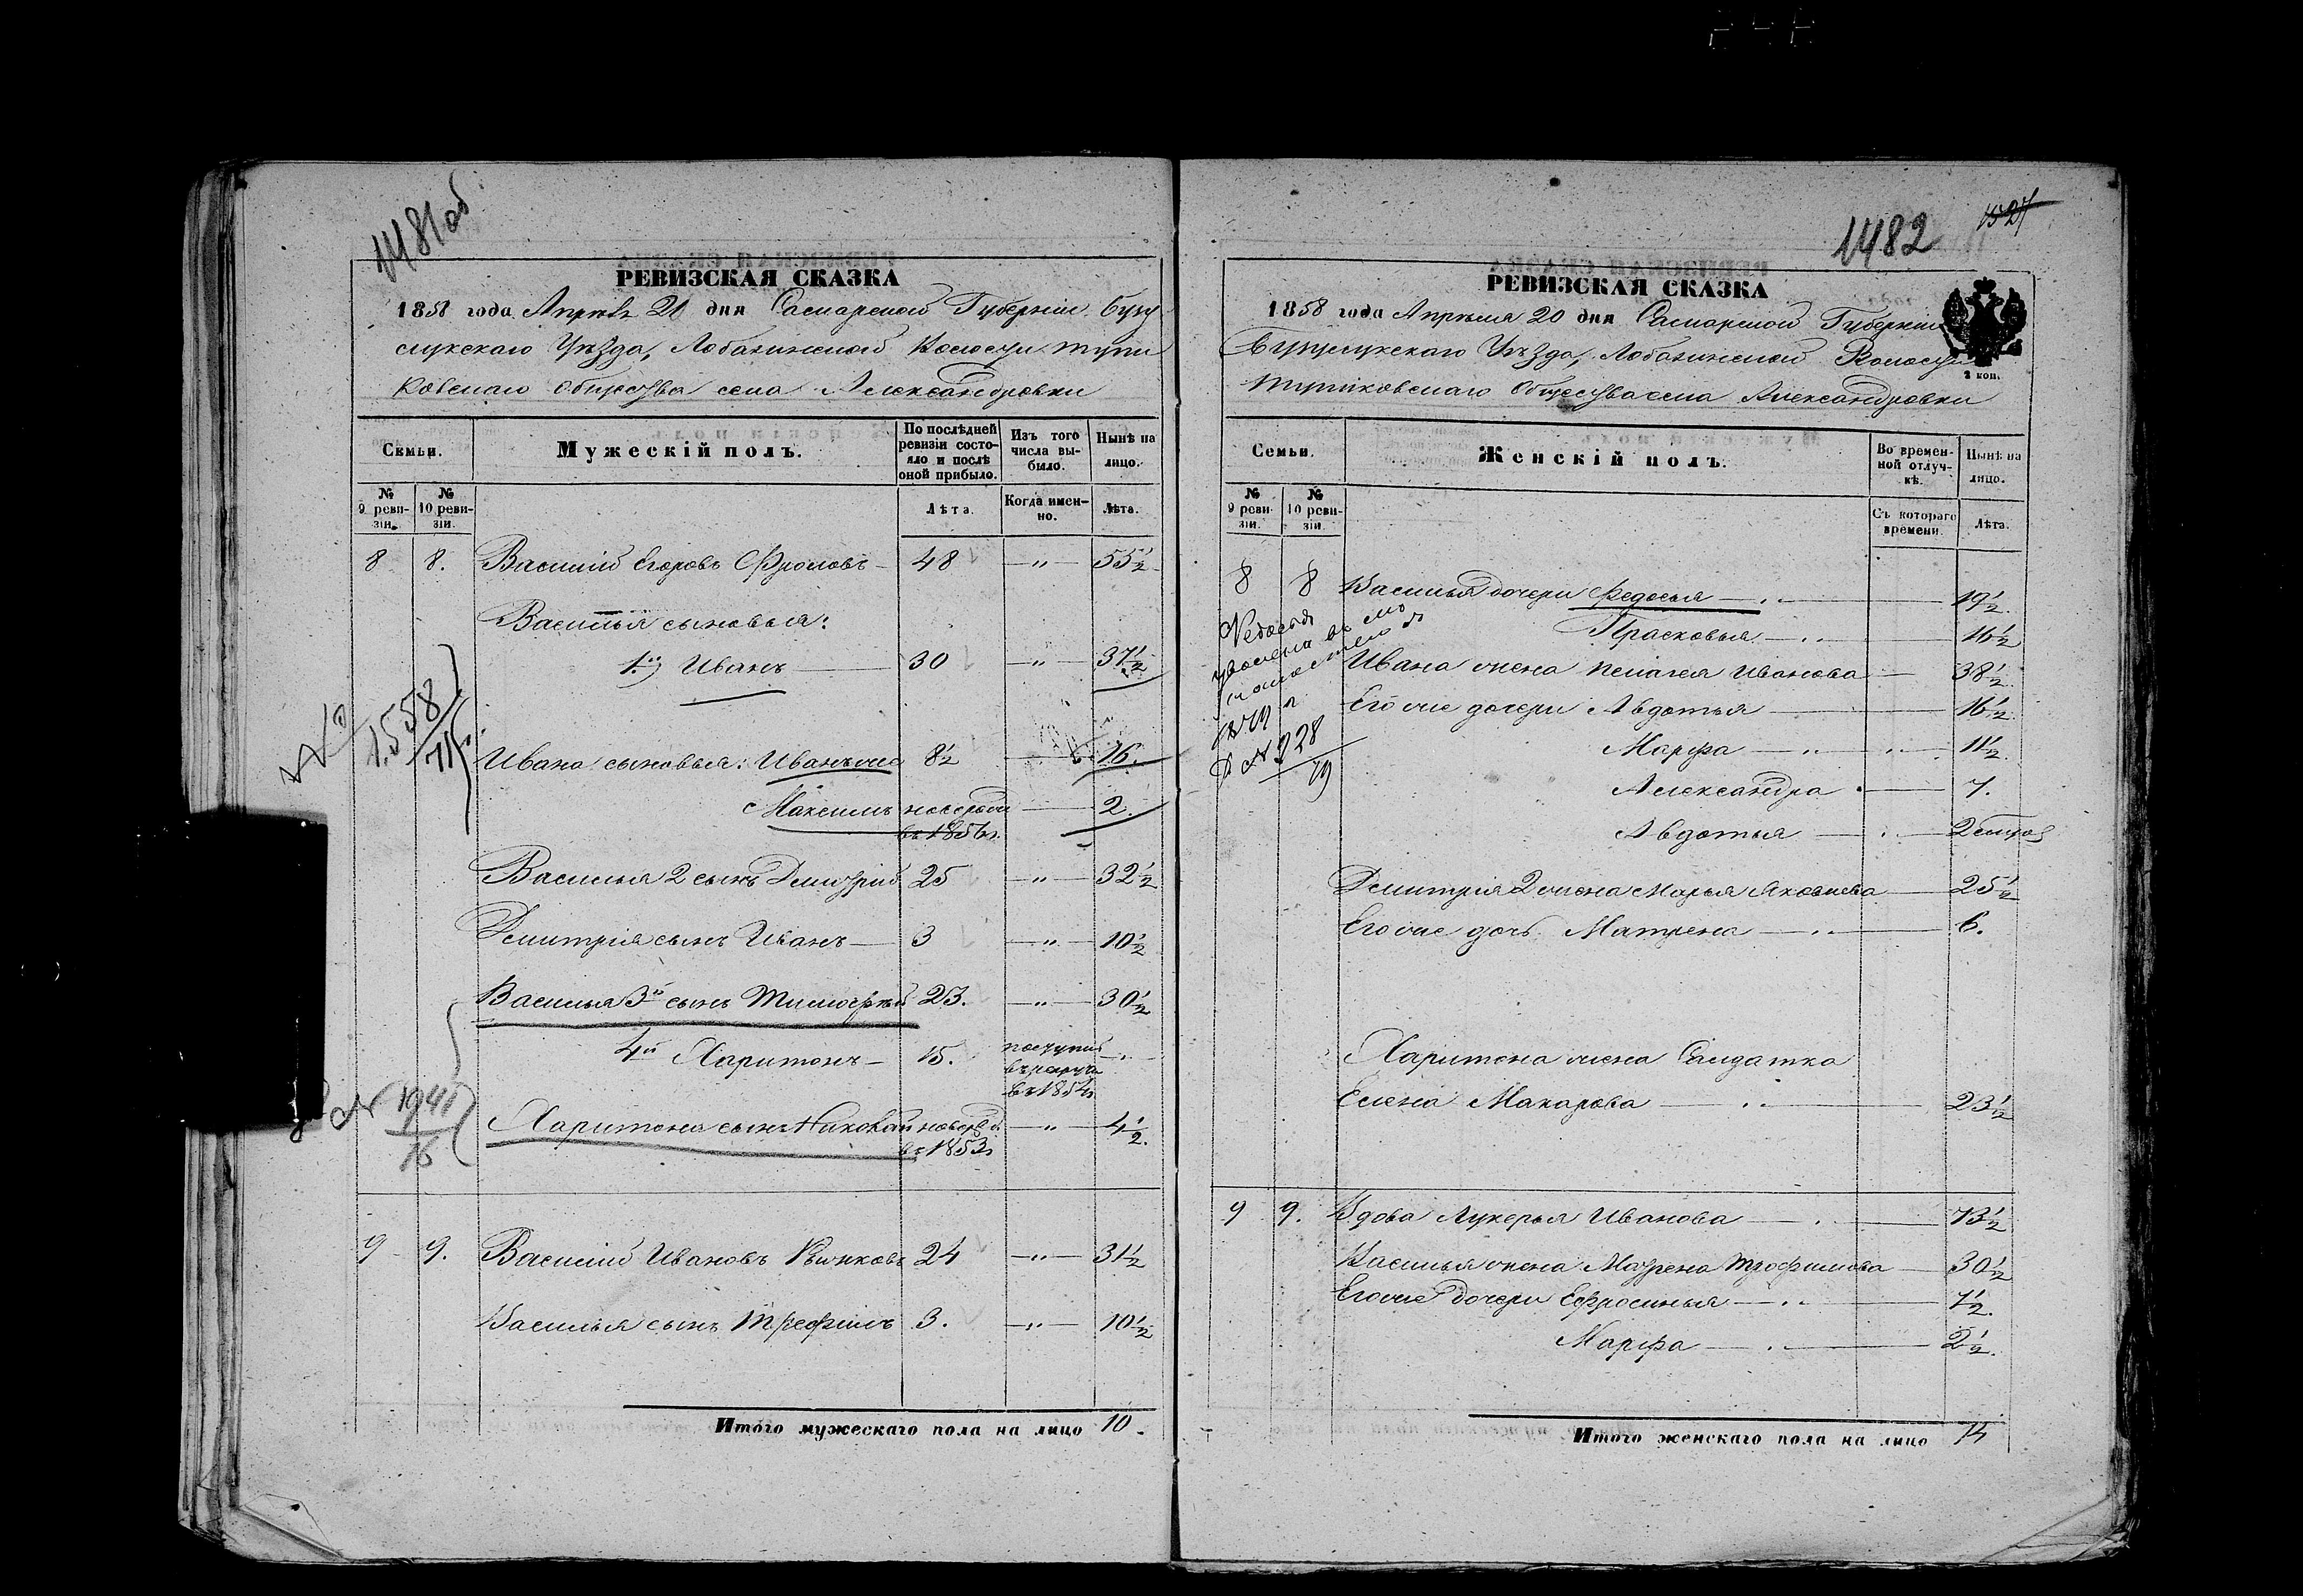 1481об
РЕВИЗСКАЯ СКАЗКА
1858 года Апрѣля 20 дня Самарской Губерніи Бузу
лукскаго Уѣзда, Лобазинской Волости Тупи
ковскаго Общества села Александровки
Семьи.
Мужескій полъ.
По послѣдней ревизіи состояло и послѣ оной прибыло.
Изъ того числа выбыло.
Нынѣ на лицо.
№ 9 ревизіи.
№ 10 ревизіи.
Лѣта.
Когда именно.
Лѣта.
8 8. Василій Егоровъ Фроловъ 48 — " — 55½
Василья сыновья:
1й) Иванъ 30 — " — 37½
№ 1558/71
Ивана сыновья: Иванъ же 8½ 16.
Максимъ новорожд 2.
въ 1856г.
Василья 2 сынъ Дмитрій 25 — " — 32½
Дмитрія сынъ Иванъ 3 — " — 10½
Василья 3й сынъ Тимофѣй 23. — " — 30½
4й Харитонъ 15. поступил
въ рекруты
въ 1854г
№ 1941/76
Харитона сынъ Николай новорожд — " — 4½.
въ 1853г
9 9. Василій Ивановъ 24 — " — 31½
Василья сынъ Трефилъ 3. — " — 10½
Итого мужескаго пола на лицо 10.
1482
1527
РЕВИЗСКАЯ СКАЗКА
1858 года Апрѣля 20 дня Самарской Губерніи
Бузулукскаго Уѣзда, Лобазинской Волости
2 коп.
Тупиковскаго Общества села Александровки
Семьи.
Женскій полъ.
Во временной отлучкѣ.
Нынѣ на лицо.
№ 9 ревизіи.
№ 10 ревизіи.
Съ котораго времени.
Лѣта.
8 8 Василья дочери Федосья 19½.
Прасковья 16½
Федосья
уволена
Ивана жена Пелагея Иванова 38½
Его же дочери Авдотья 16½
№ 328/79
Марфа 11½
Александра 7.
Авдотья 2
Дмитрія 2 жена Марья Яковлева 25½
Его же дочь Матрена 6.
Харитона жена Салдатка
Елена Макарова 23½
9 9. Вдова Лукерья Иванова 73½
Василья жена Матрена Трофимова 30½
Его же дочери Ефросинья 7½.
Марфа 2½.
Итого женскаго пола на лицо 14